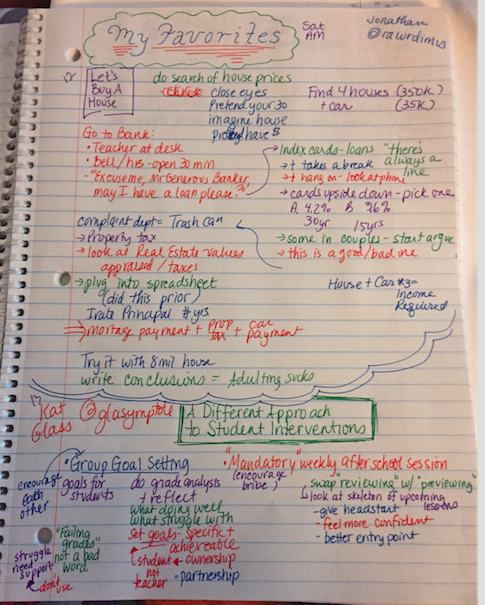 My Favorites
Sat
AM
Jonathan
@rawrdimus
Let's
Buy A
House
do search of house prices
close eyes
Pretend your 30
imagine house
have $
Find 4 houses (350K)
+ car (35K)
Go to Bank:
• Teacher at desk
• Bell/his - open 30 min
• "Excuse me, Mr Generous Banker,
may I have a loan please?"
→ Index cards - loans "there's
always a
line
→ + takes a break
→ + hang on - look at phone
→ cards upside down - pick one
A. 4.2% B 3.6%
30yr 15yrs
complaint dept = Trash can
→ Property tax
→ look at Real Estate values
appraised / taxes
→ plug into spreadsheet
(did this prior)
Irate Principal # yrs
⇒ mortage payment + prop tax + car payment
→ some in couples - start argue
→ this is a good/bad one
House + Car *3 =
Income
Required
Try it with 8 mil house
write conclusions = Adulting sucks
Kat
Glass
@glasymptote
A Different Approach
to Student Interventions
• Group Goal Setting
encourage
each
other
goals for
students
"Failing
grades"
not a bad
word.
struggle
need
support
don't
use
do grade analysis
+ reflect
what doing well
what struggle with
Set goals - specific +
achieveable
↳ student ← ownership
not
teacher = partnership
• "Mandatory" weekly after school session
(encourage
bribe)
"swap reviewing" w/ "previewing"
look at skeleton of upcoming
lessons
- give headstart
- feel more confident
- better entry point